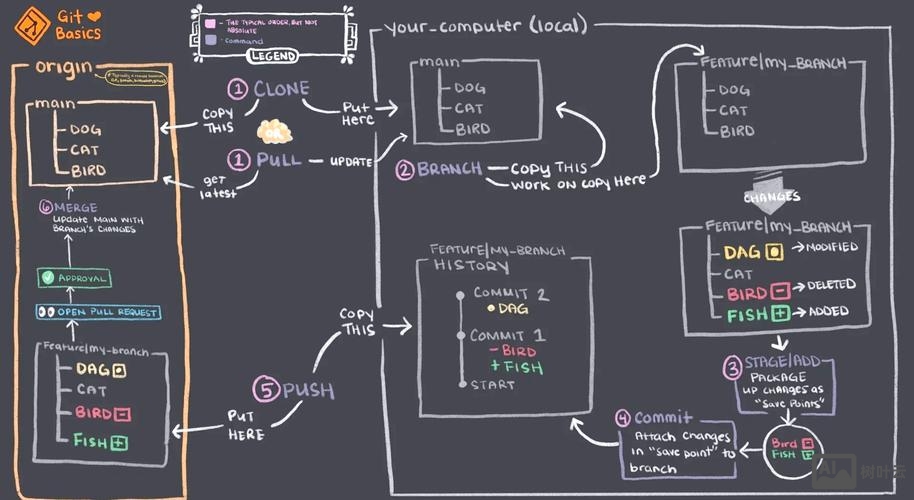 Git
Basics
- THE TYPICAL ORDER, BUT NOT
ABSOLUTE
- Command
LEGEND
origin
main
DOG
CAT
BIRD
⑥ MERGE
update MAIN WITH
BRANCH'S CHANGES
APPROVAL
OPEN PULL REQUEST
Feature/my-branch
DAG
CAT
BIRD
FISH
① CLONE
COPY
THIS
PUT
HERE
OR
① PULL
UPDATE
get
latest
your_computer (local)
main
DOG
CAT
BIRD
② BRANCH
COPY THIS
WORK ON COPY HERE
FEATURE/MY_BRANCH
DOG
CAT
BIRD
CHANGES
FEATURE/MY_BRANCH
DAG → MODIFIED
CAT
BIRD → DELETED
FISH → ADDED
③ STAGE/ADD
PACKAGE
UP CHANGES AS
"SAVE POINTS"
Bird
FISH
④ Commit
Attach changes
in "save point" to
branch
FEATURE/MY_BRANCH
HISTORY
COMMIT 2
DAG
COMMIT 1
- BIRD
+ FISH
START
⑤ PUSH
COPY
THIS
PUT
HERE
树叶云